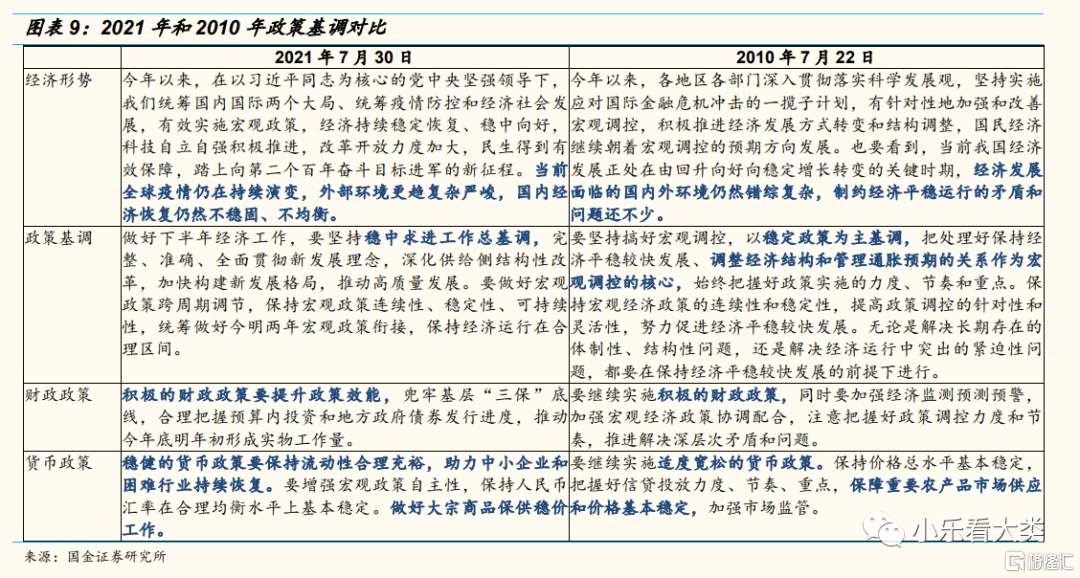 图表 9：2021 年和 2010 年政策基调对比
2021 年 7 月 30 日
2010 年 7 月 22 日
经济形势
今年以来，在以习近平同志为核心的党中央坚强领导下，
我们统筹国内国际两个大局、统筹疫情防控和经济社会发
展，有效实施宏观政策，经济持续稳定恢复、稳中向好，
科技自立自强积极推进，改革开放力度加大，民生得到有
效保障，踏上向第二个百年奋斗目标进军的新征程。当前
全球疫情仍在持续演变，外部环境更趋复杂严峻，国内经
济恢复仍然不稳固、不均衡。
今年以来，各地区各部门深入贯彻落实科学发展观，坚持实施
应对国际金融危机冲击的一揽子计划，有针对性地加强和改善
宏观调控，积极推进经济发展方式转变和结构调整，国民经济
继续朝着宏观调控的预期方向发展。也要看到，当前我国经济
发展正处在由回升向好向稳定增长转变的关键时期，经济发展
面临的国内外环境仍然错综复杂，制约经济平稳运行的矛盾和
问题还不少。
政策基调
做好下半年经济工作，要坚持稳中求进工作总基调，完
整、准确、全面贯彻新发展理念，深化供给侧结构性改
革，加快构建新发展格局，推动高质量发展。要做好宏观
政策跨周期调节，保持宏观政策连续性、稳定性、可持续
性，统筹做好今明两年宏观政策衔接，保持经济运行在合
理区间。
要坚持搞好宏观调控，以稳定政策为主基调，把处理好保持经
济平稳较快发展、调整经济结构和管理通胀预期的关系作为宏
观调控的核心，始终把握好政策实施的力度、节奏和重点。保
持宏观经济政策的连续性和稳定性，提高政策调控的针对性和
灵活性，努力促进经济平稳较快发展。无论是解决长期存在的
体制性、结构性问题，还是解决经济运行中突出的紧迫性问
题，都要在保持经济平稳较快发展的前提下进行。
财政政策
积极的财政政策要提升政策效能，兜牢基层“三保”底
线，合理把握预算内投资和地方政府债券发行进度，推动
今年底明年初形成实物工作量。
要继续实施积极的财政政策，同时要加强经济监测预测预警，
加强宏观经济政策协调配合，注意把握好政策调控力度和节
奏，推进解决深层次矛盾和问题。
货币政策
稳健的货币政策要保持流动性合理充裕，助力中小企业和
困难行业持续恢复。要增强宏观政策自主性，保持人民币
汇率在合理均衡水平上基本稳定。做好大宗商品保供稳价
工作。
要继续实施适度宽松的货币政策。保持价格总水平基本稳定，
把握好信贷投放力度、节奏、重点，保障重要农产品市场供应
和价格基本稳定，加强市场监管。
来源：国金证券研究所
小乐看大类
格隆汇